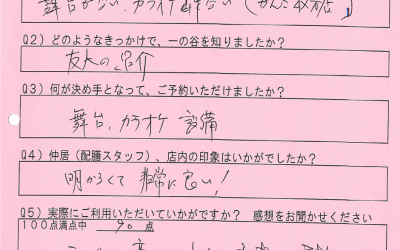 舞台がない、カラオケ
Q2）どのようなきっかけで、一の谷を知りましたか？
友人の紹介
Q3）何が決め手となって、ご予約いただけましたか？
舞台、カラオケ 設備
Q4）仲居（配膳スタッフ）、店内の印象はいかがでしたか？
明かるくて 非常に良い！
Q5）実際にご利用いただいていかがですか？ 感想をお聞かせください
100点満点中 90 点